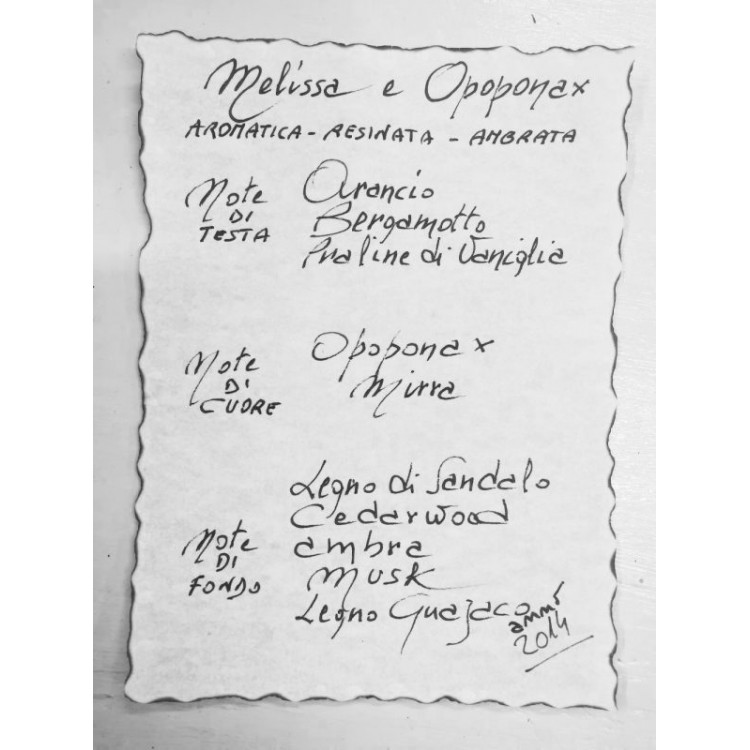 Melissa e Opoponax
AROMATICA - RESINATA - AMBRATA
Note
DI
TESTA
Arancio
Bergamotto
Praline di Vaniglia
Note
DI
CUORE
Opoponax
Mirra
Note
DI
FONDO
Legno di Sandalo
Cedarwood
ambra
Musk
Legno Guajaco
2014